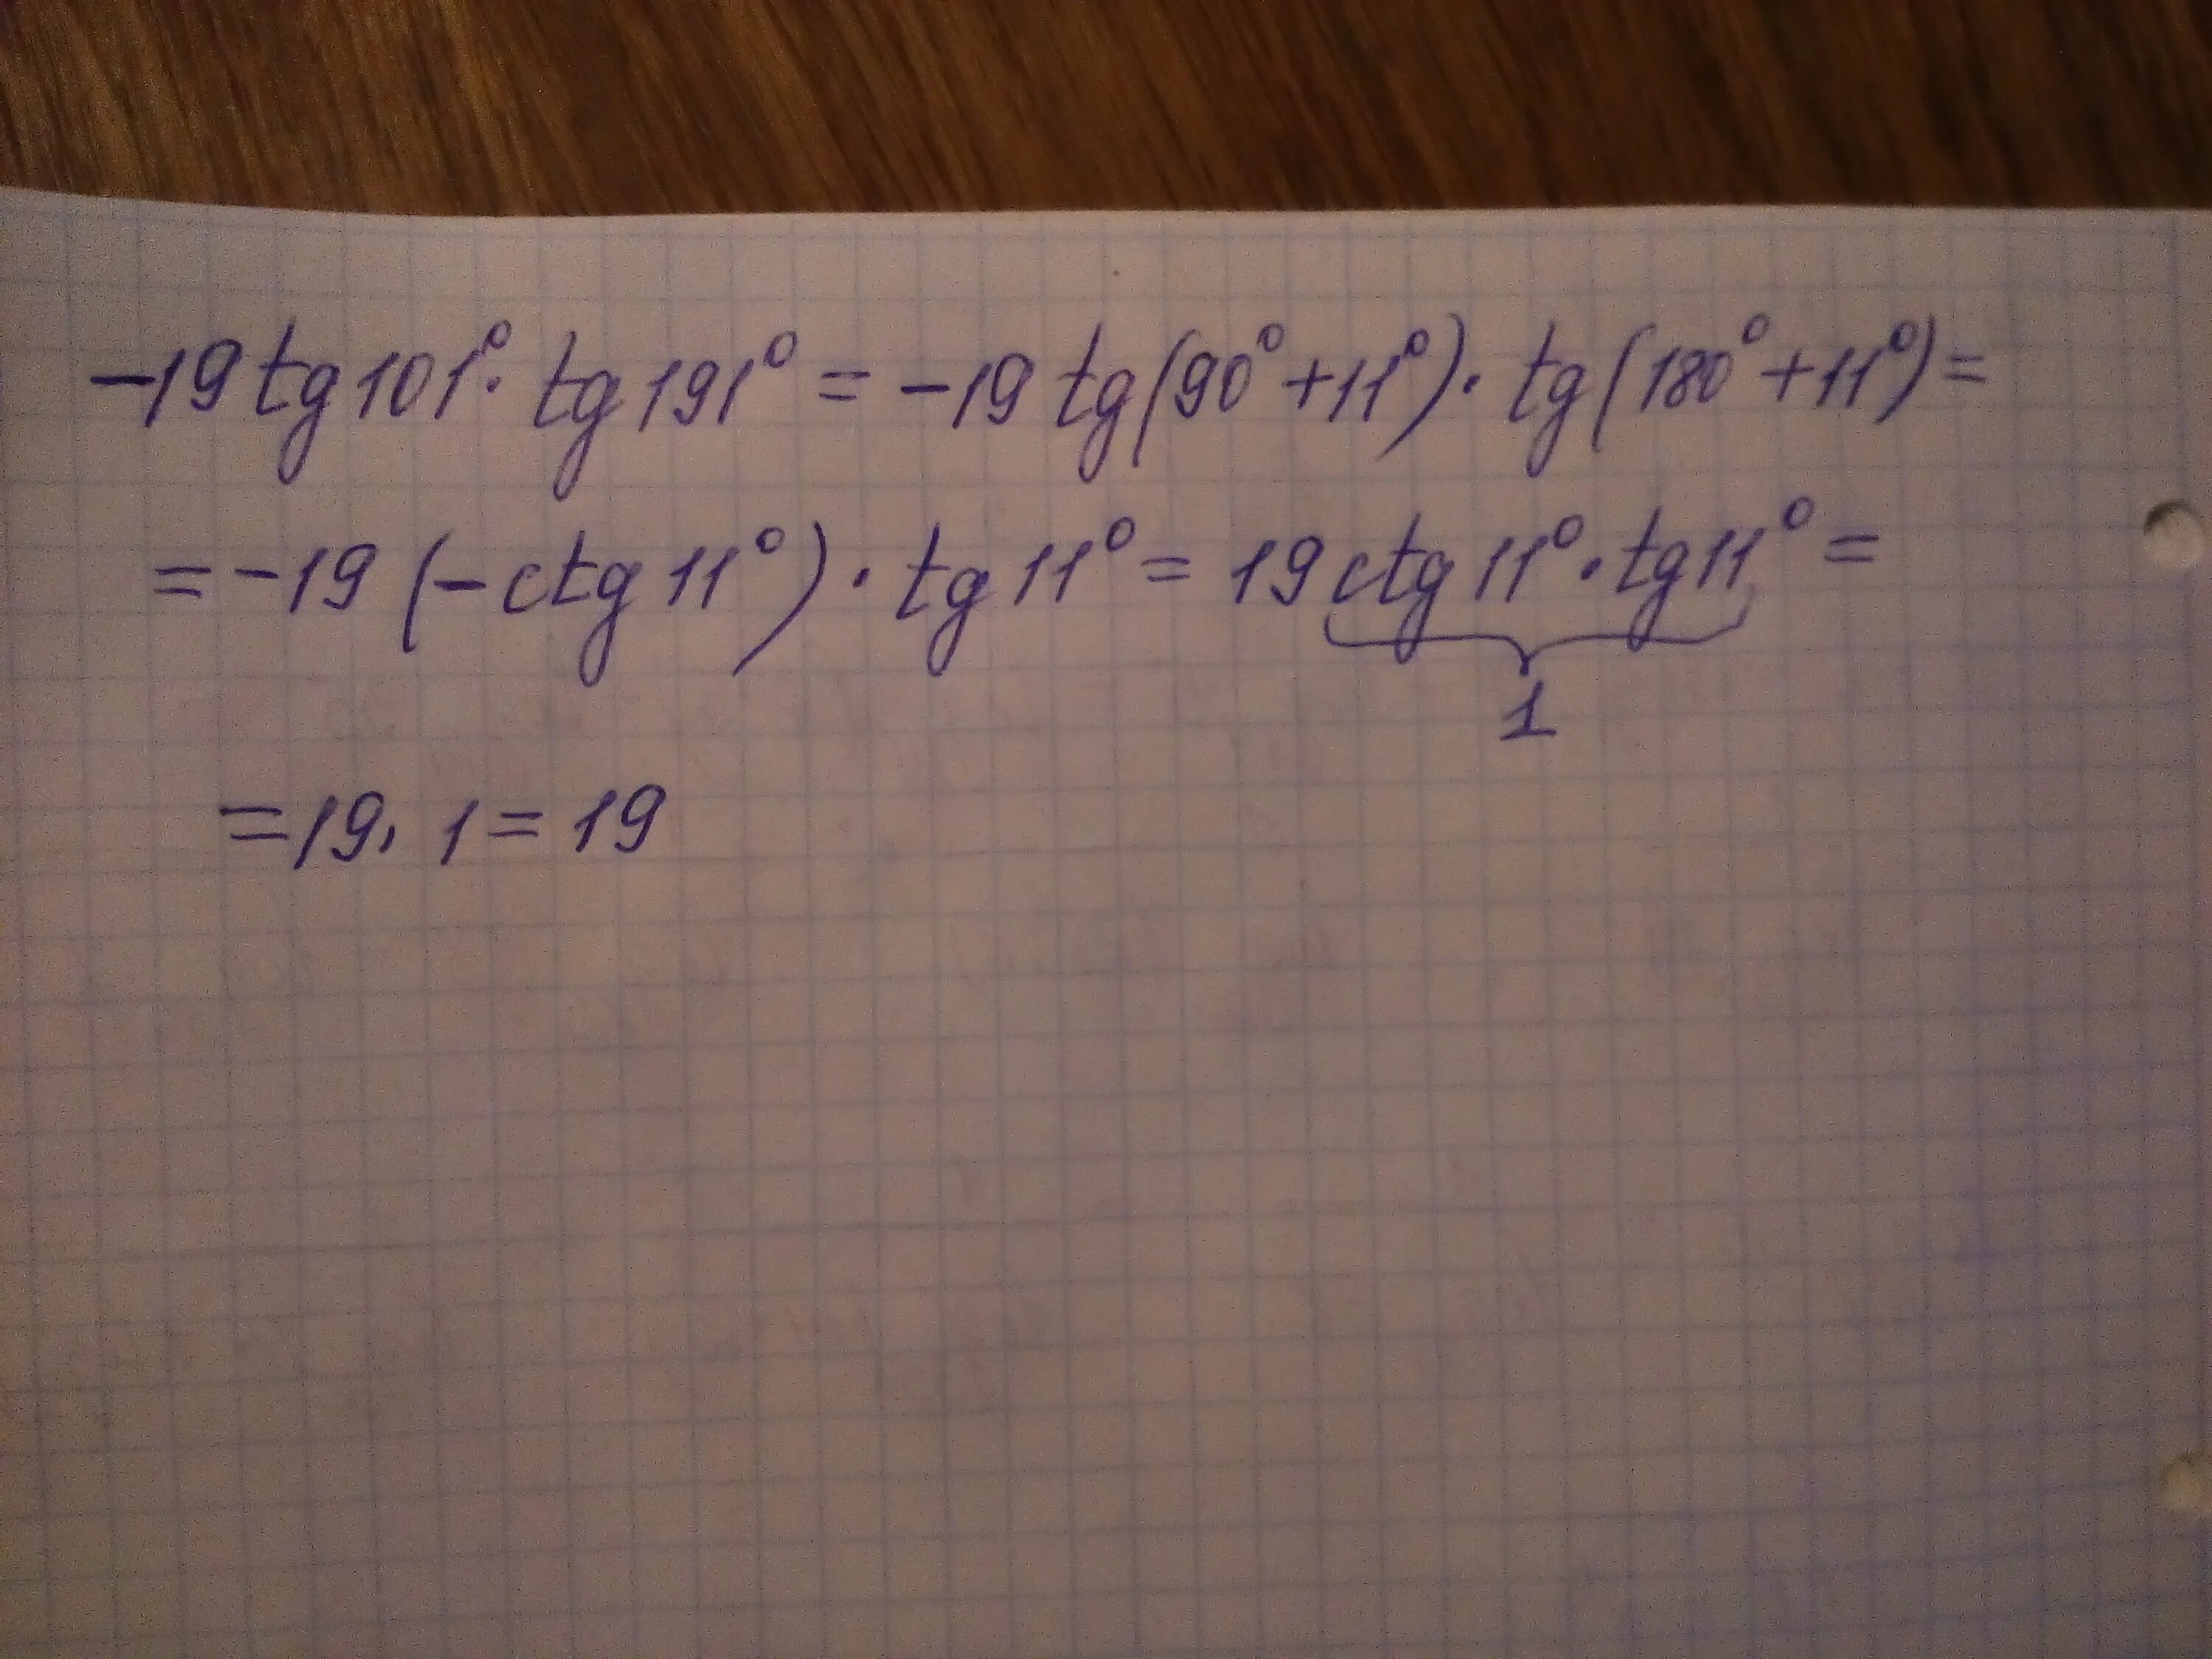 -19 tg 101° · tg 191° = -19 tg(90° + 11°) · tg(180° + 11°) =
= -19 (-ctg 11°) · tg 11° = 19 ctg 11° · tg 11° =
1
= 19 · 1 = 19